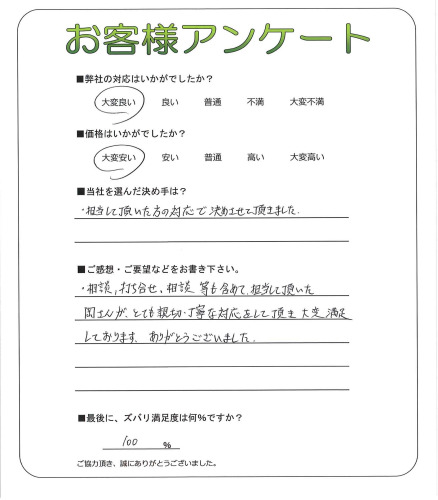 お客様アンケート
■弊社の対応はいかがでしたか？
大変良い 良い 普通 不満 大変不満
■価格はいかがでしたか？
大変安い 安い 普通 高い 大変高い
■当社を選んだ決め手は？
・担当して頂いた方の対応で決めさせて頂きました.
■ご感想・ご要望などをお書き下さい。
・相談,打ち合せ、相談 等も含めて、担当して頂いた
岡さんが、とても親切・丁寧な対応をして頂き 大変満足
しております. ありがとうございました.
■最後に、ズバリ満足度は何％ですか？
100 %
ご協力頂き、誠にありがとうございました。